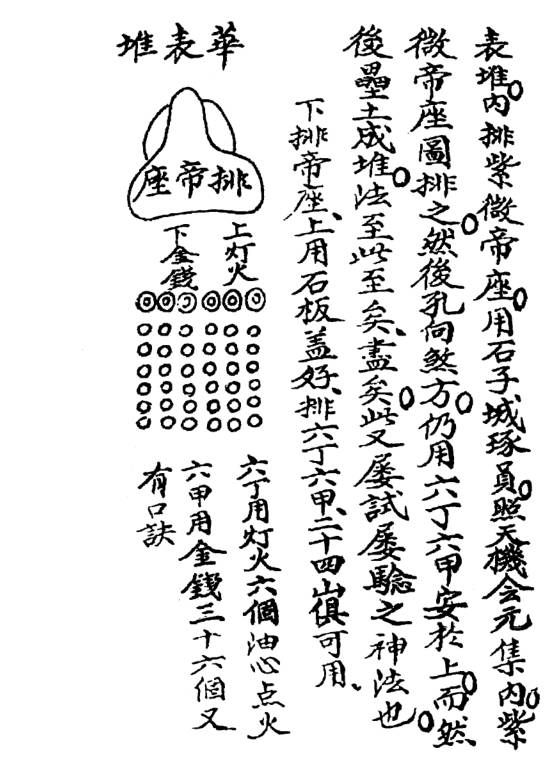 表堆內排紫微帝座用石子城琢員照天機会元集內紫
微帝座圖排之然後孔向煞方仍用六丁六甲安於上而然
後壘土成堆法至此至矣、盡矣此又屡試屡驗之神法也
下排帝座、上用石板盖好、排六丁六甲、二十四山俱可用、
華表堆
排帝座
上灯火
下金錢
六丁用灯火六個油心点火
六甲用金錢三十六個又
有口訣